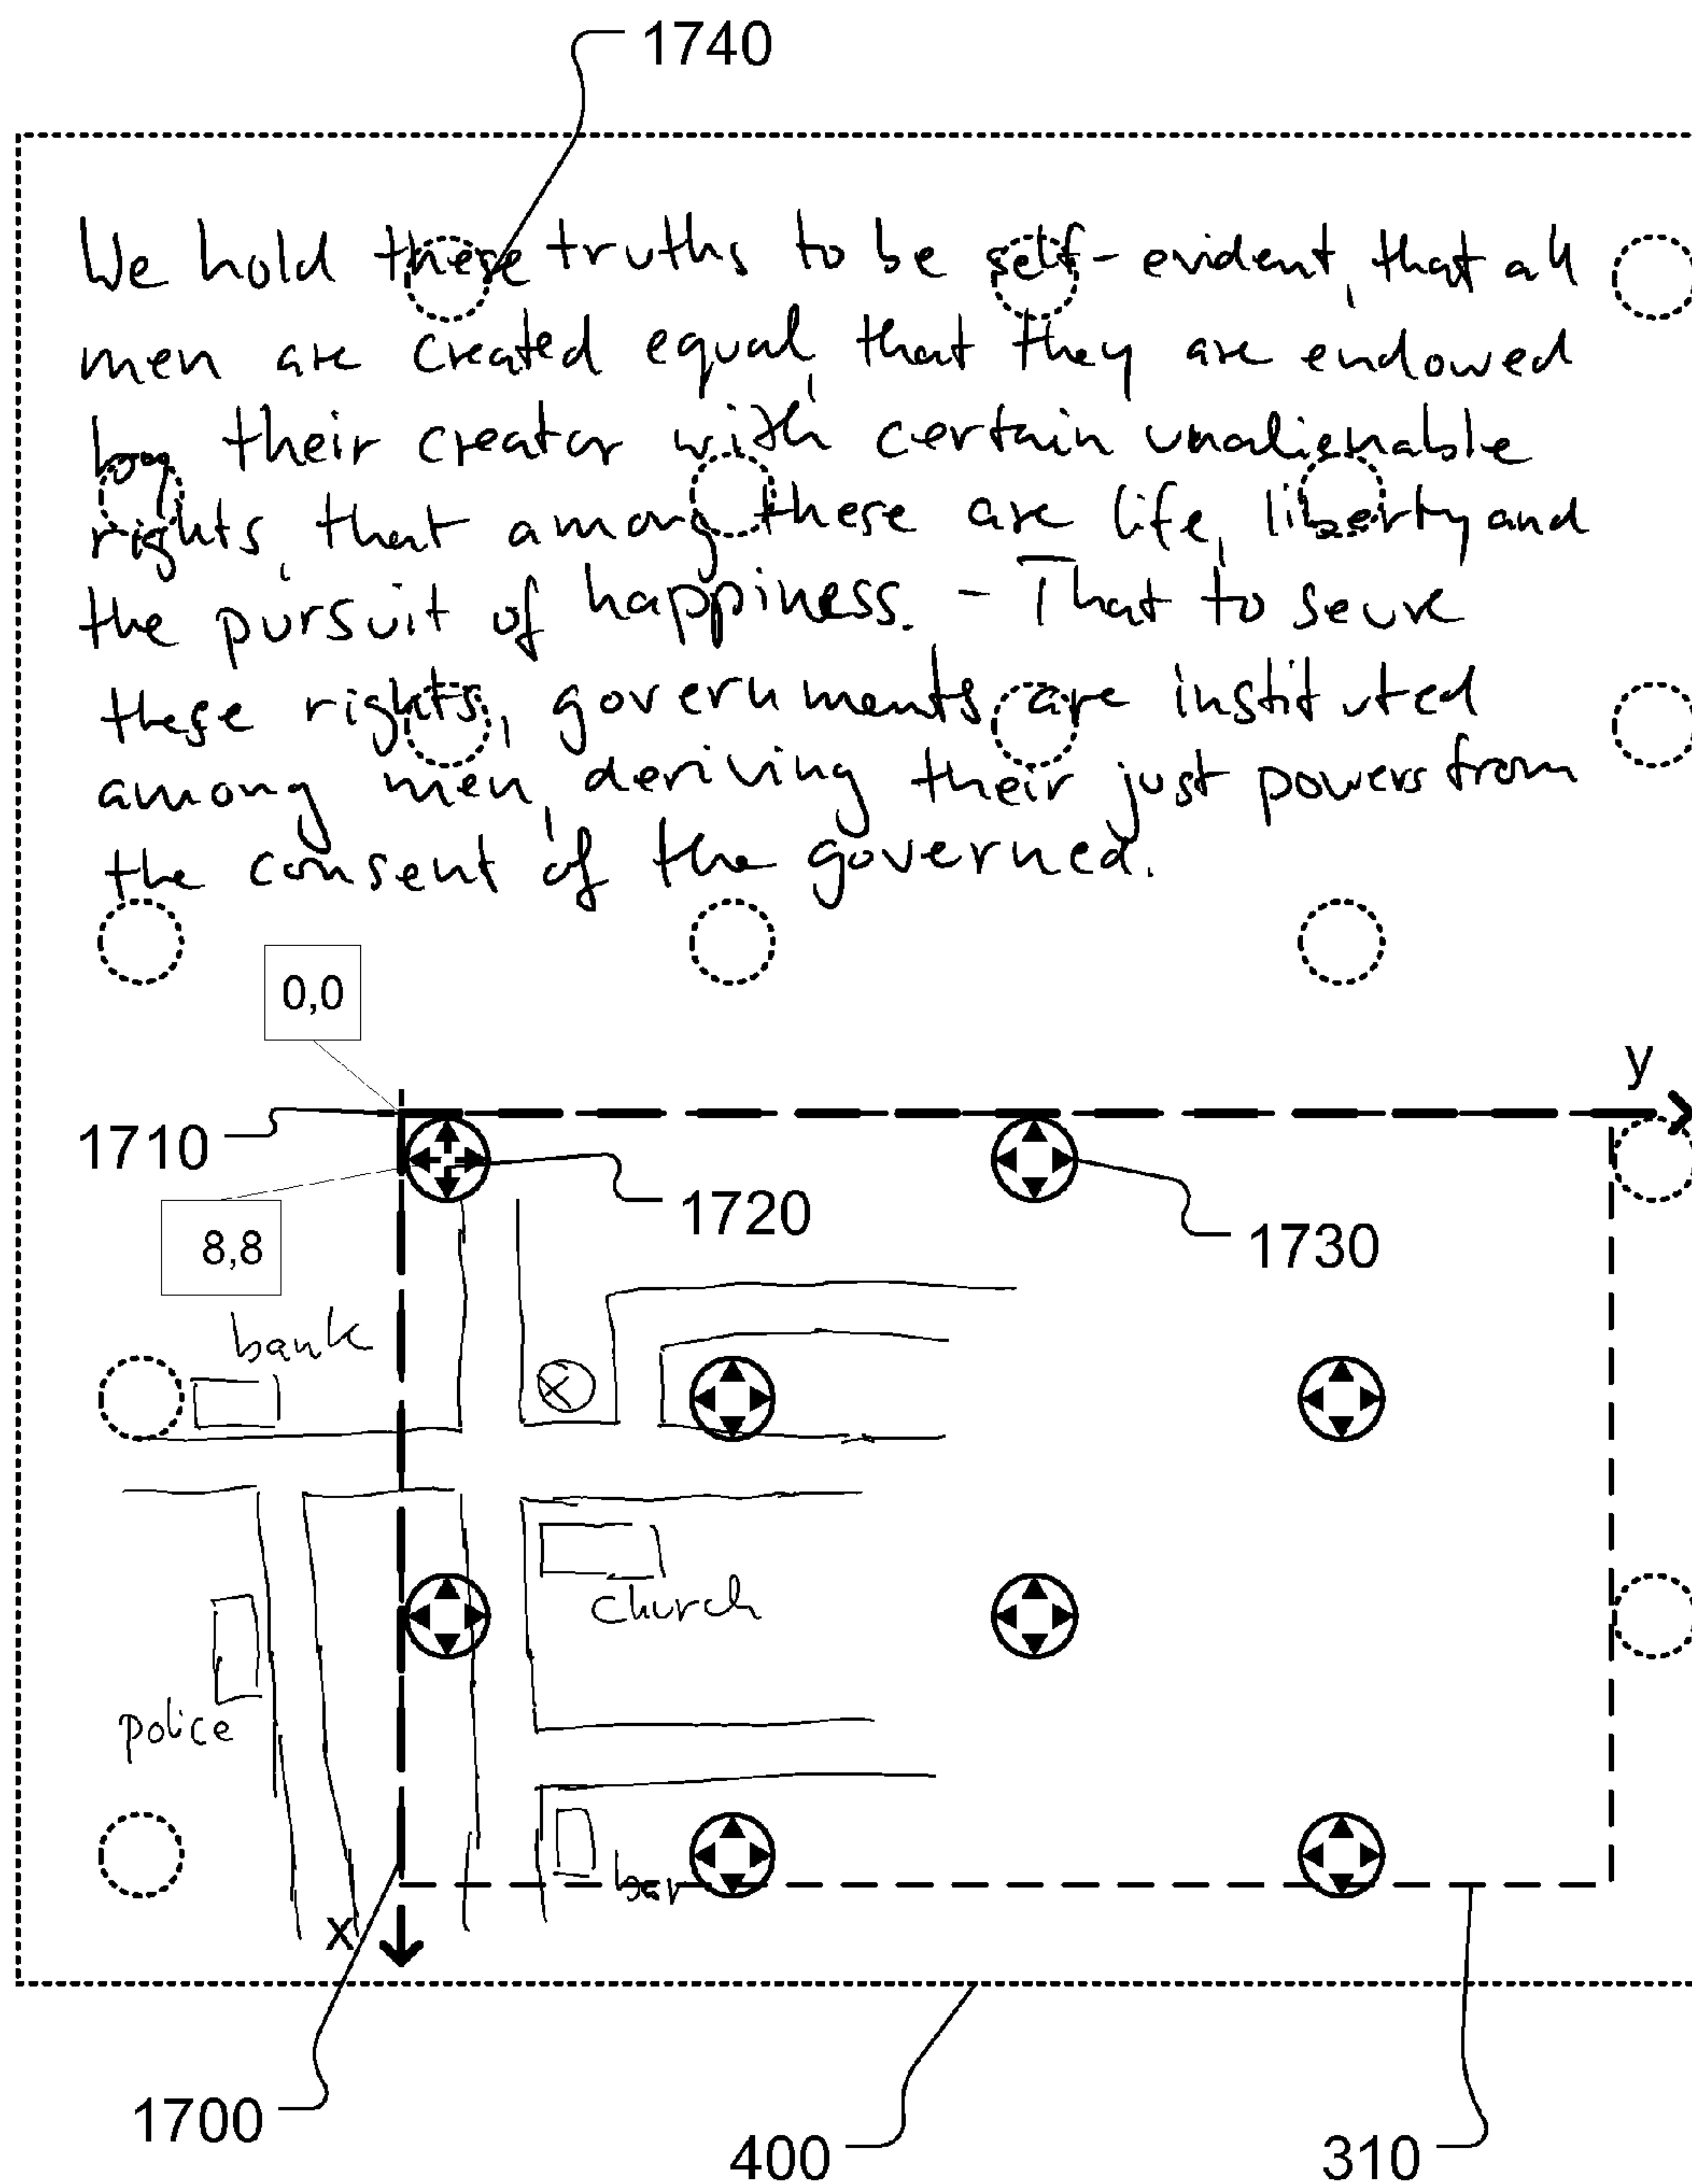 1740
We hold these truths to be self-evident, that all
men are created equal, that they are endowed
by their creator with certain unalienable
rights, that among these are life, liberty and
the pursuit of happiness. - That to secure
these rights, governments are instituted
among men, deriving their just powers from
the consent of the governed.
0,0
y
1710
1720
1730
8,8
bank
church
police
bar
x
1700
400
310